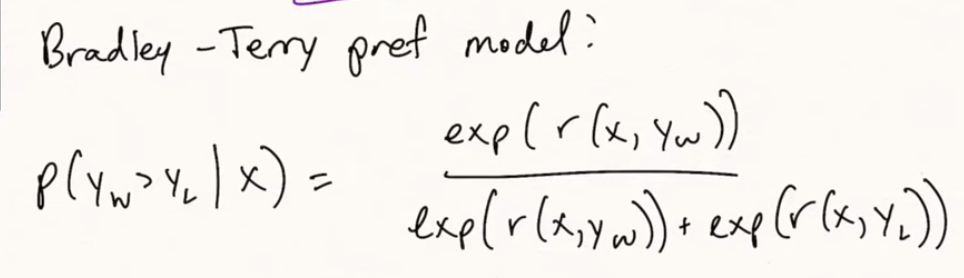 Bradley-Terry pref model:
p(y_w > y_L | x) = exp(r(x, y_w)) / exp(r(x, y_w)) + exp(r(x, y_L))